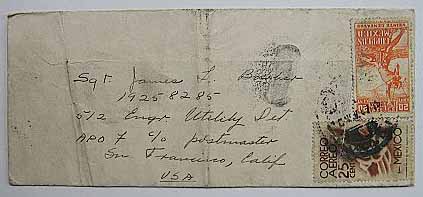 Sgt James L.
19258285
512 Engr Utility Det
APO 7 c/o postmaster
San Francisco, Calif
USA
CORREOS MEXICO
CORREO
AEREO
25
MEXICO